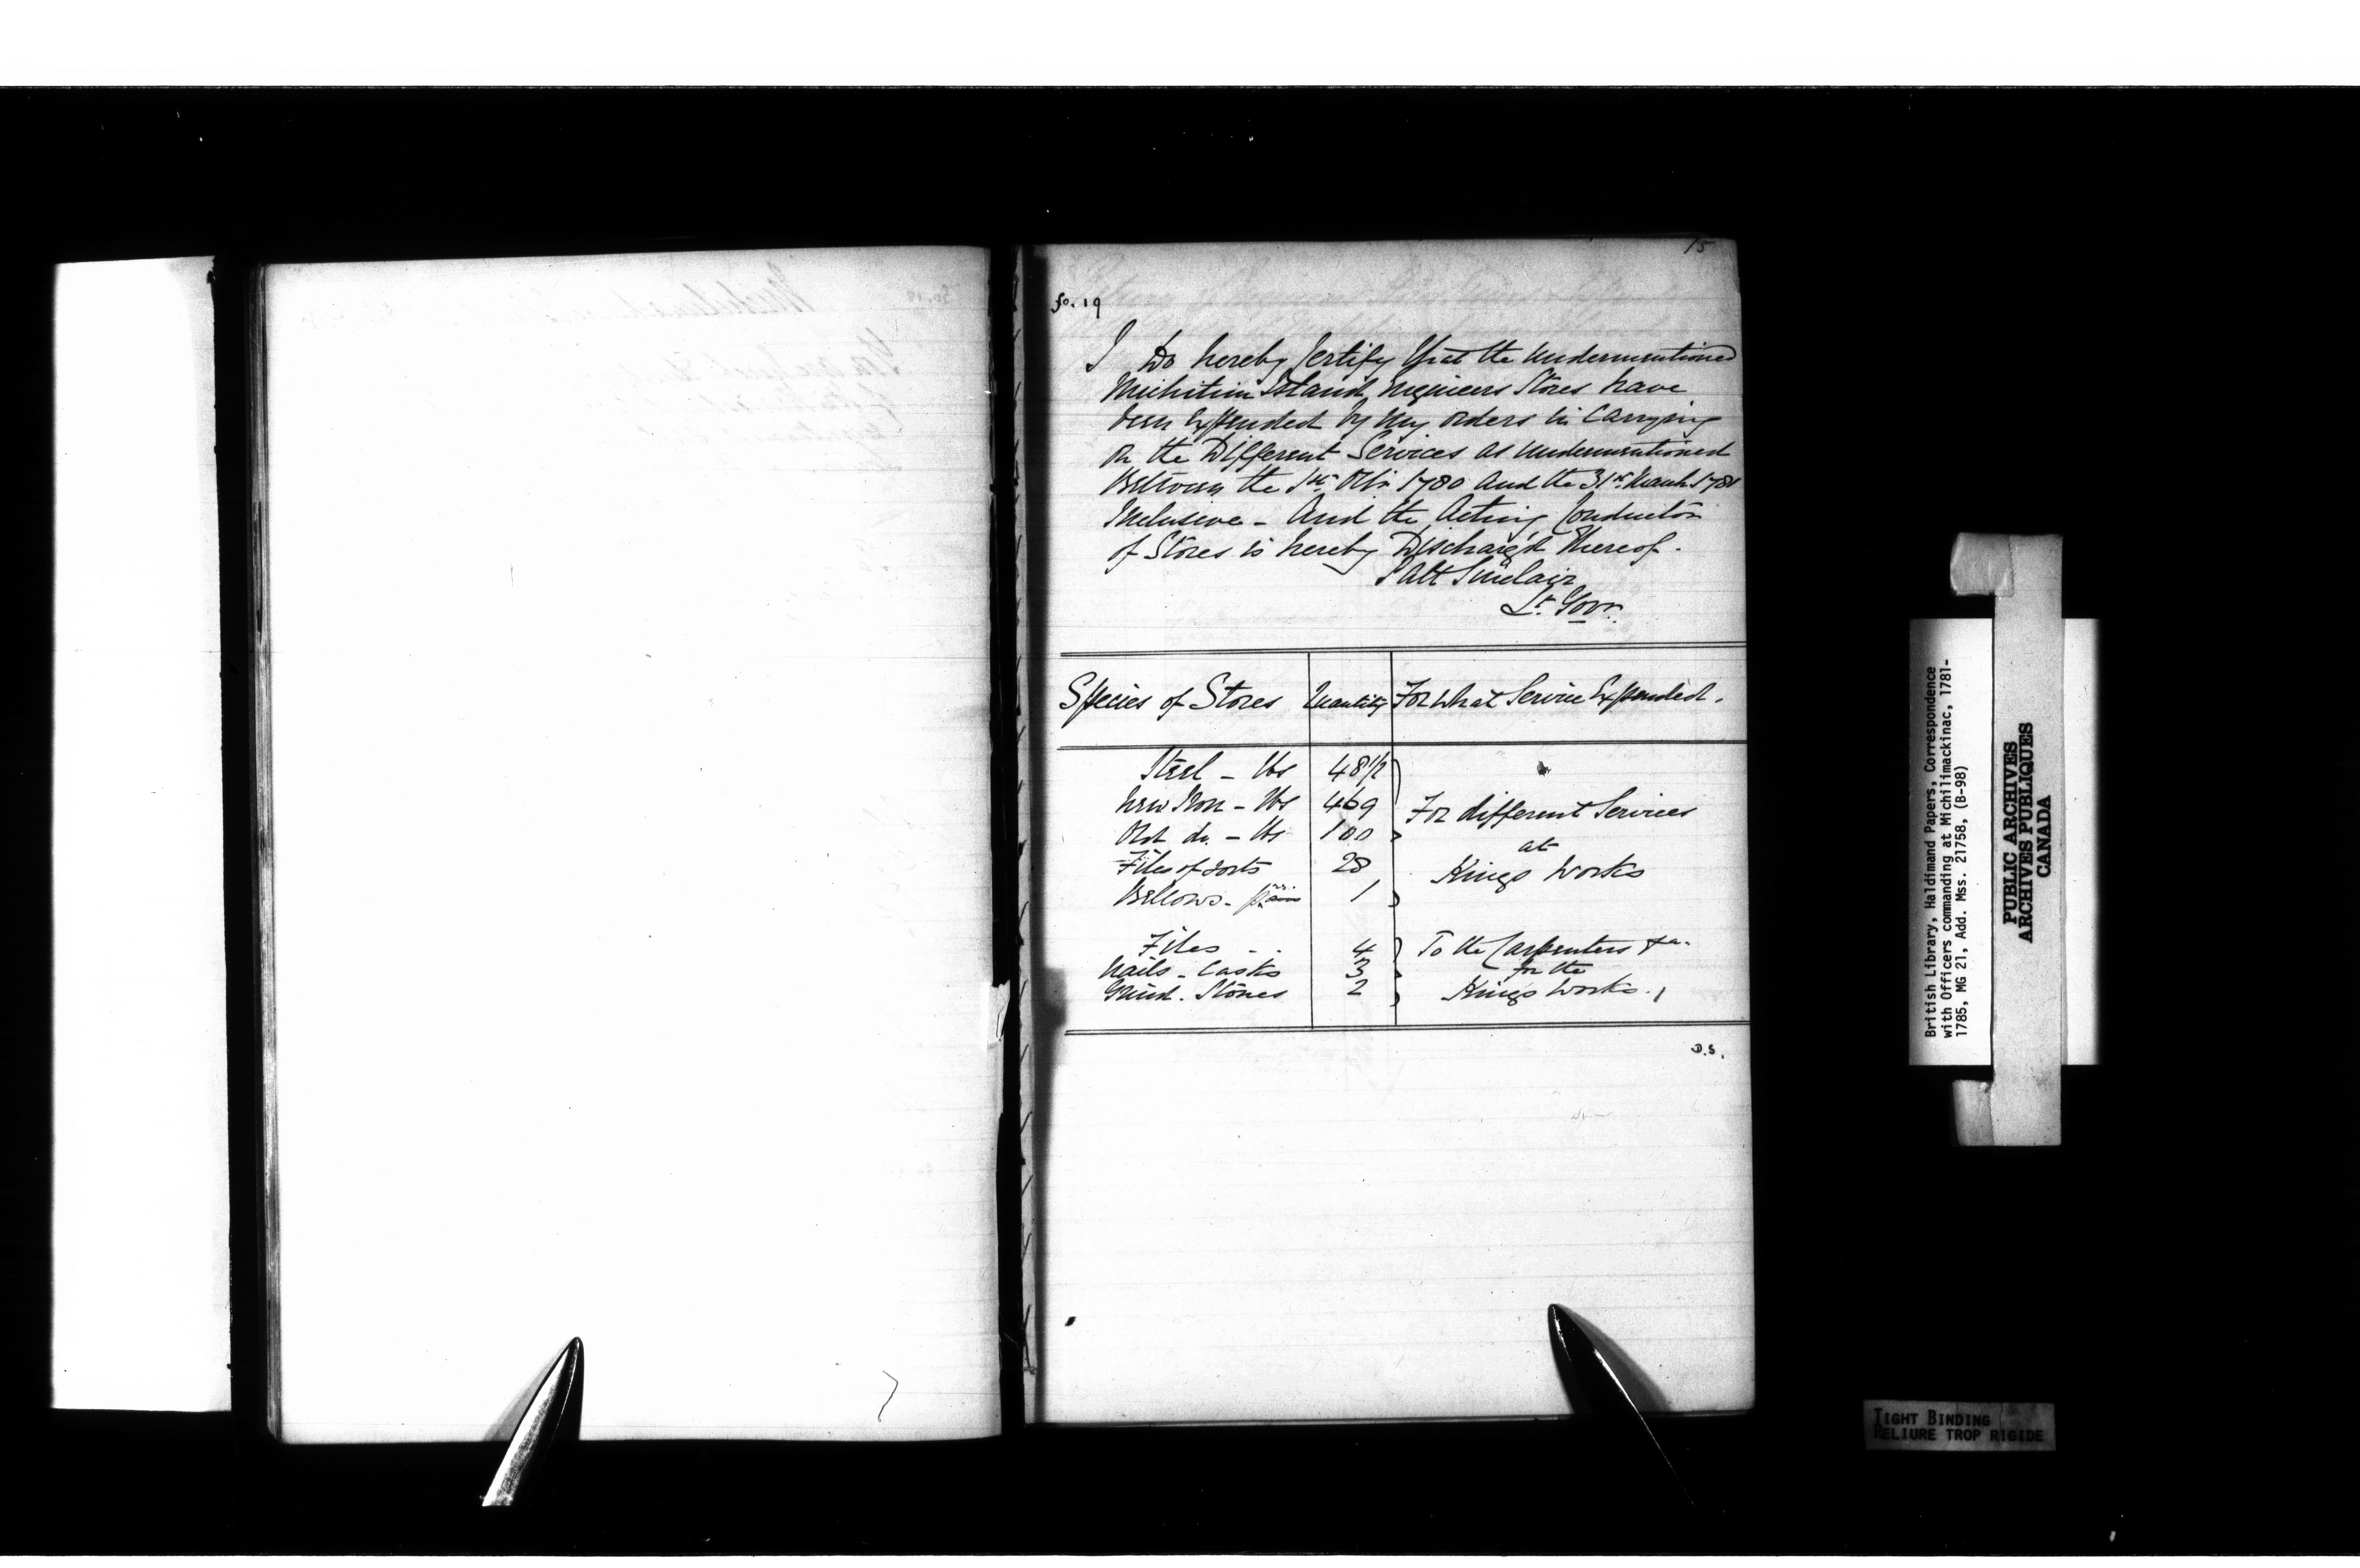 15
fo. 19
I Do hereby Certify that the Undermentioned
Island Engineers Stores have
been Expended by my orders in Carrying
on the Different Services as undermentioned
Between the 1st. Octbr 1780 And the 31st. March 1781
Inclusive - And the Acting Conductor
of Stores is hereby Discharg'd thereof.
Patt Sinclair
Lt. Govr.
Species of Stores Quantity For What Service Expended.
Steel - lbs 48 1/2
New Iron - lbs 469 For different Services
Old do. - lbs 100
at
Files of sorts 28 Kings Works
Bellows - pair 1
Files - - 4 To the Carpenters &a.
Nails - Casks 3 for the
Grind. Stones 2 Kings Works.
D.S.
British Library, Haldimand Papers, Correspondence
with Officers commanding at Michilimackinac, 1781-
1785, MG 21, Add. Mss. 21758, (B-98)
PUBLIC ARCHIVES
ARCHIVES PUBLIQUES
CANADA
TIGHT BINDING
RELIURE TROP RIGIDE